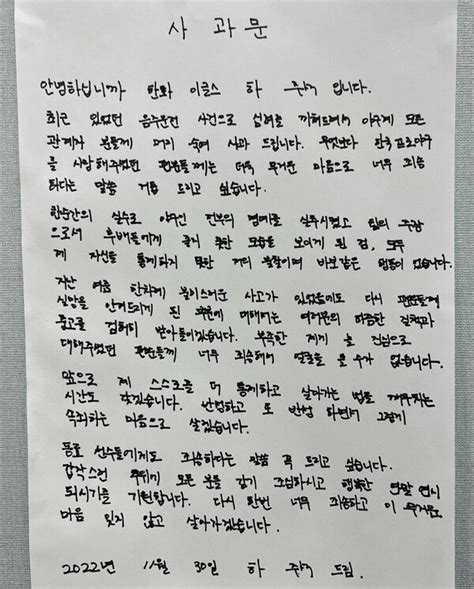 사 과 문
안녕하십니까 한화 이글스 하 주석 입니다.
최근 있었던 음주운전 사건으로 심려를 끼쳐드려서 야구계 모든
관계자 분들께 머리 숙여 사과 드립니다. 무엇보다 한국프로야구
를 사랑해주셨던 팬분들께는 더욱 무거운 마음으로 너무 죄송
하다는 말씀 거듭 드리고 싶습니다.
한순간의 실수로 야구인 전부의 명예를 실추시켰고 팀의 주장
으로서 후배들에게 좋지 못한 모습을 보이게 된 점, 모두
제 자신을 통제하지 못한 저의 불찰이며 바보같은 행동이 없습니다.
지난 여름 한차례 불미스러운 사고가 있었음에도 다시 팬분들께
실망을 안겨드리게 된 부분에 대해서는 여러분의 따끔한 질책과
충고를 겸허히 받아들이겠습니다. 부족한 제게 늘 진심으로
대해주셨던 팬분들께 너무 죄송해서 얼굴을 들 수가 없습니다.
앞으로 제 스스로를 더 통제하고 살아가는 법을 깨우치는
시간도 갖겠습니다. 반성하고 또 반성 하면서 그렇게
속죄하는 마음으로 살겠습니다.
동료 선수들에게도 죄송하다는 말씀 꼭 드리고 싶습니다.
갑작스런 추위에 모든 분들 감기 조심하시고 행복한 연말 연시
되시기를 기원합니다. 다시 한번 너무 죄송하고 이 무거운
마음 잊지 않고 살아가겠습니다.
2022년 11월 30일 하 주석 드림.